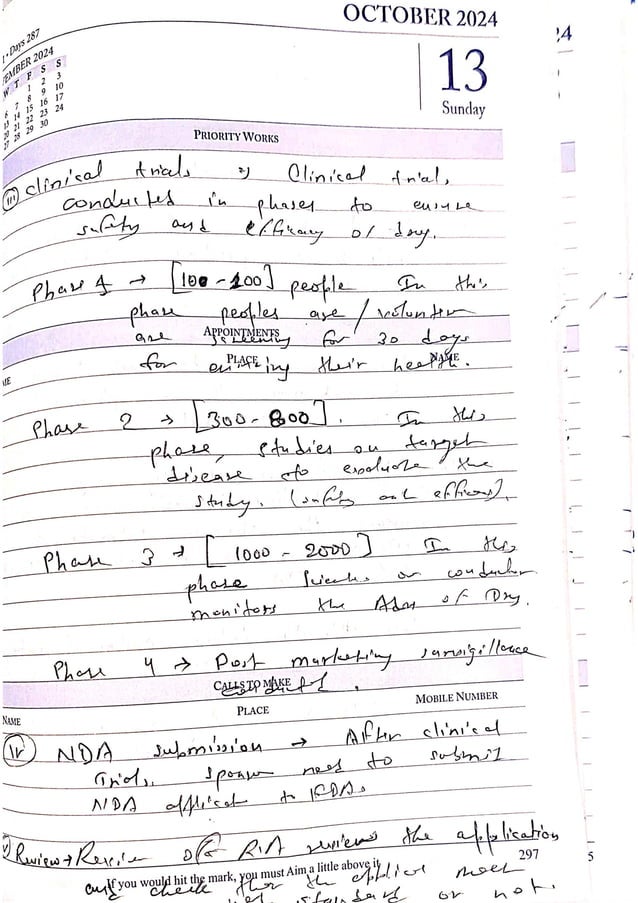 OCTOBER 2024
• Days 287
TEMBER 2024
W T F S S
1 2 3
6 7 8 9 10
13 14 15 16 17
20 21 22 23 24
27 28 29 30
13
Sunday
24
PRIORITY WORKS
(iii) Clinical trials => Clinical trial,
conducted in phases to ensure
safety and efficacy of drug.
Phase 1 → [100 - 200] people In this
phase peoples are / volunteer
APPOINTMENTS
are screening for 30 days
PLACE
NAME
for their health.
Phase 2 → [300 - 800]. In this
phase, studies on target
disease to evaluate the
study. (safety and efficacy).
Phase 3 → [1000 - 2000] In this
phase or conductor
monitors the ADRs of Drug.
Phase 4 → Post marketing
CALLS TO MAKE
NAME
PLACE
MOBILE NUMBER
(iv) NDA submission → After clinical
trials, sponsor need to submit
NDA applicat to FDA.
Review → Review of RA reviews the application
297
If you would hit the mark, you must Aim a little above it
and check the meet
standard or not.
5